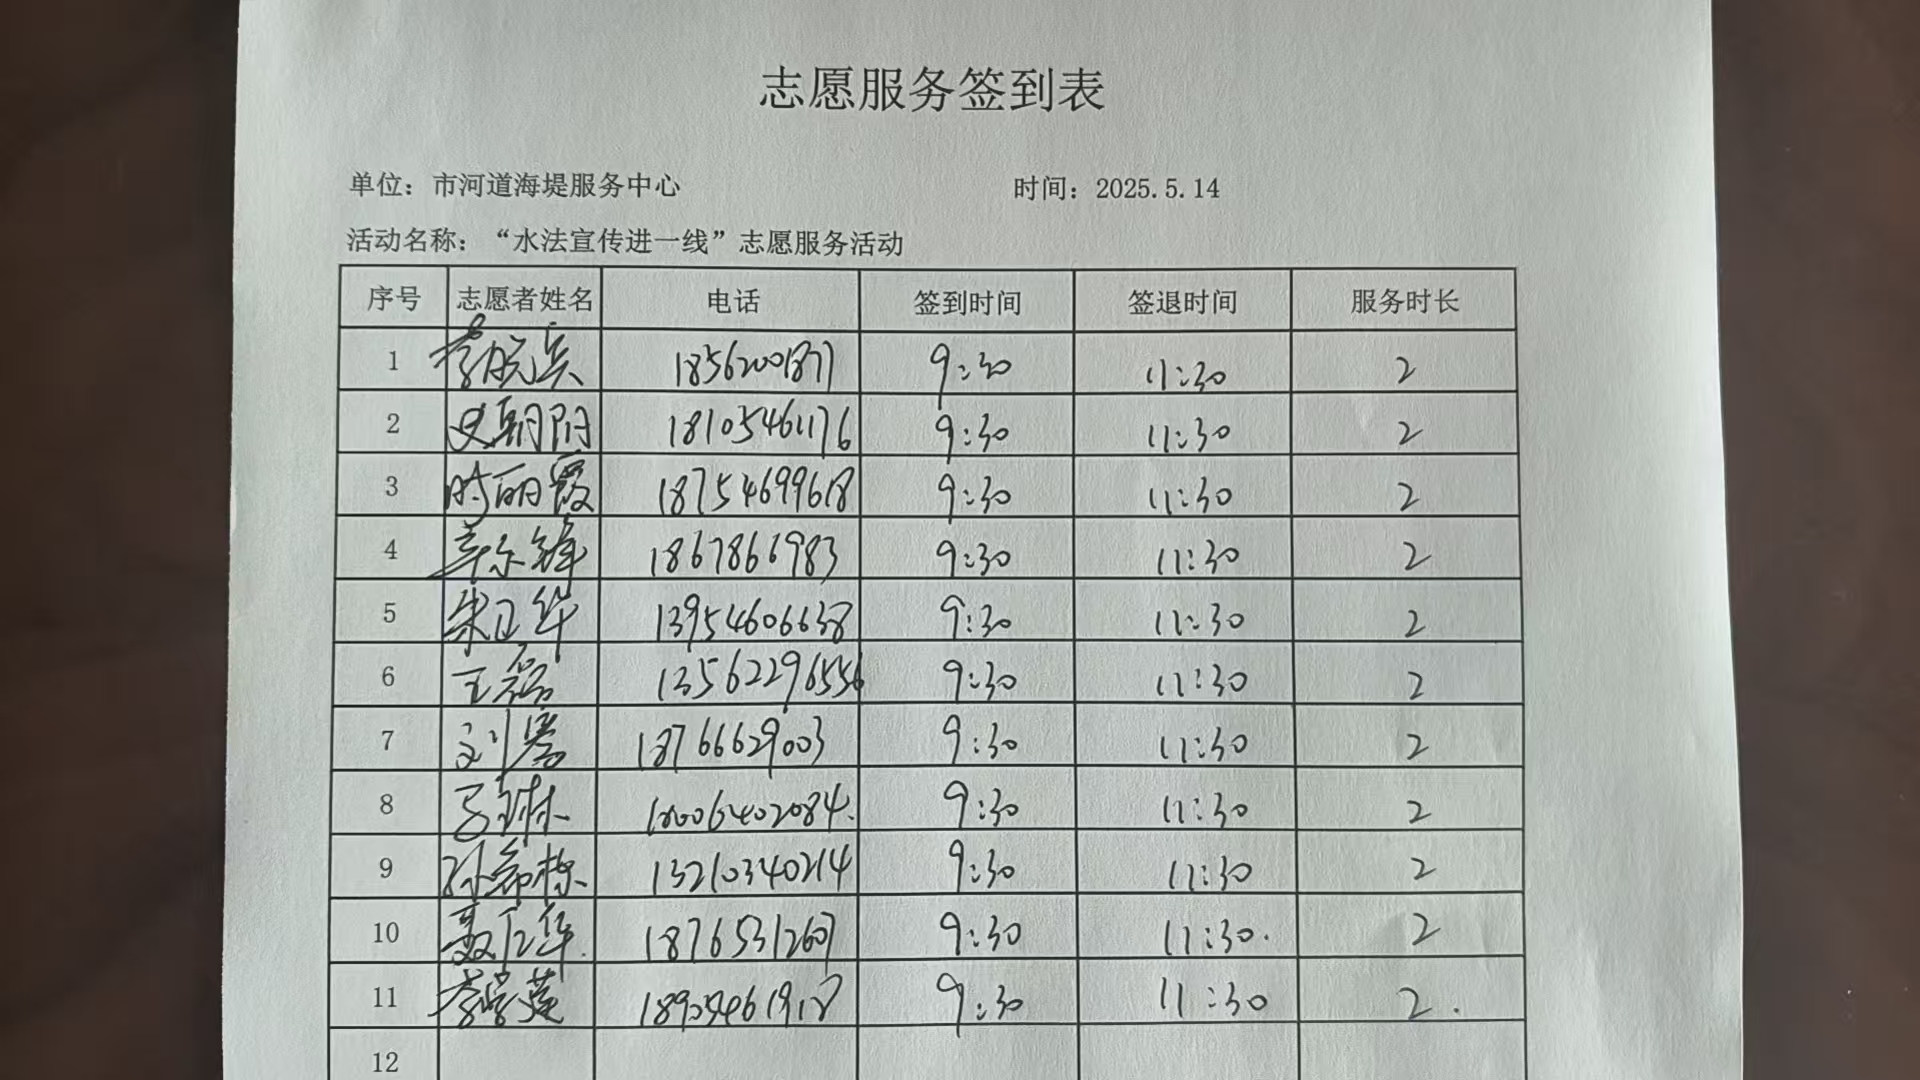 志愿服务签到表
单位：市河道海堤服务中心 时间：2025.5.14
活动名称：“水法宣传进一线”志愿服务活动
序号 志愿者姓名 电话 签到时间 签退时间 服务时长
1 18562001877 9:30 11:30 2
2 史朝阳 18105461176 9:30 11:30 2
3 时丽霞 18754699618 9:30 11:30 2
4 9:30 11:30 2
5 朱卫华 13954606638 9:30 11:30 2
6 王磊 13562296556 9:30 11:30 2
7 18766629003 9:30 11:30 2
8 9:30 11:30 2
9 13210340214 9:30 11:30 2
10 18765312607 9:30 11:30. 2
11 9:30 11:30 2.
12